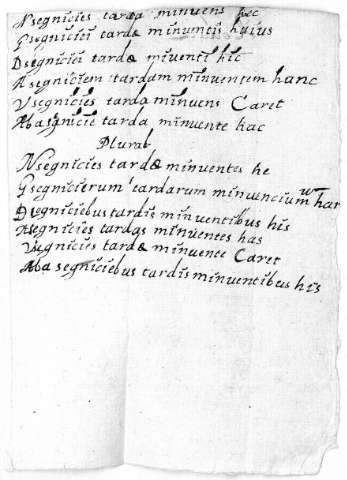 N segnicies tarda minuens hec
G segniciei tardæ minuentis huius
D segniciei tardæ minuenti hic
A segniciem tardam minuentem hanc
V segnicies tarda minuens Caret
Aba segnicie tarda minuente hac
Plural
N segnicies tardæ minuentes he
G segnicierum tardarum minuencium har
D segniciebus tardis minuentibus his
A segnicies tardas minuentes has
V segnicies tardæ minuente Caret
Aba segniciebus tardis minuentibus his